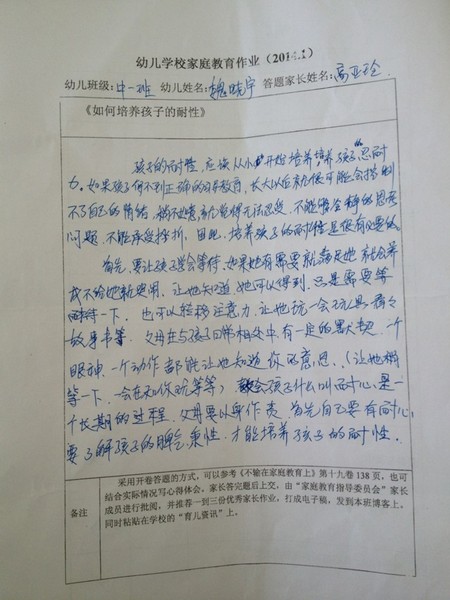 幼儿学校家庭教育作业（2014.1）
幼儿班级：中一班 幼儿姓名：魏晓宇 答题家长姓名：高亚玲
《如何培养孩子的耐性》
孩子的耐性，应该从小就开始培养，培养孩子“忍耐
力。如果孩子得不到正确的培养教育，长大以后就很可能会控制
不了自己的情绪，稍不如意就觉得无法忍受，不能够冷静的思考
问题，不能承受挫折，因此，培养孩子的耐性是很有必要的。
首先，要让孩子学会等待，如果她有需要就满足她就会养
我不给她就哭闹，让她知道她可以得到，只是需要等
待一下，也可以转移注意力，让她玩一会玩具，看看
故事书等，父母在与孩子日常相处中有一定的默契，一个
眼神，一个动作都能让她知道你的意思，（让她稍
等一下，一会在和你玩等等）教会孩子什么叫耐心，是一
个长期的过程，父母要以身作责，首先自己要有耐心，
要了解孩子的脾气秉性，才能培养孩子的耐性。
备注
采用开卷答题的方式，可以参考《不输在家庭教育上》第十九卷138页，也可
结合实际情况写心得体会。家长答完题后上交，由“家庭教育指导委员会”家长
成员进行批阅，并推荐一到三份优秀家长作业，打成电子稿，发到本班博客上，
同时粘贴在学校的“育儿资讯”上。